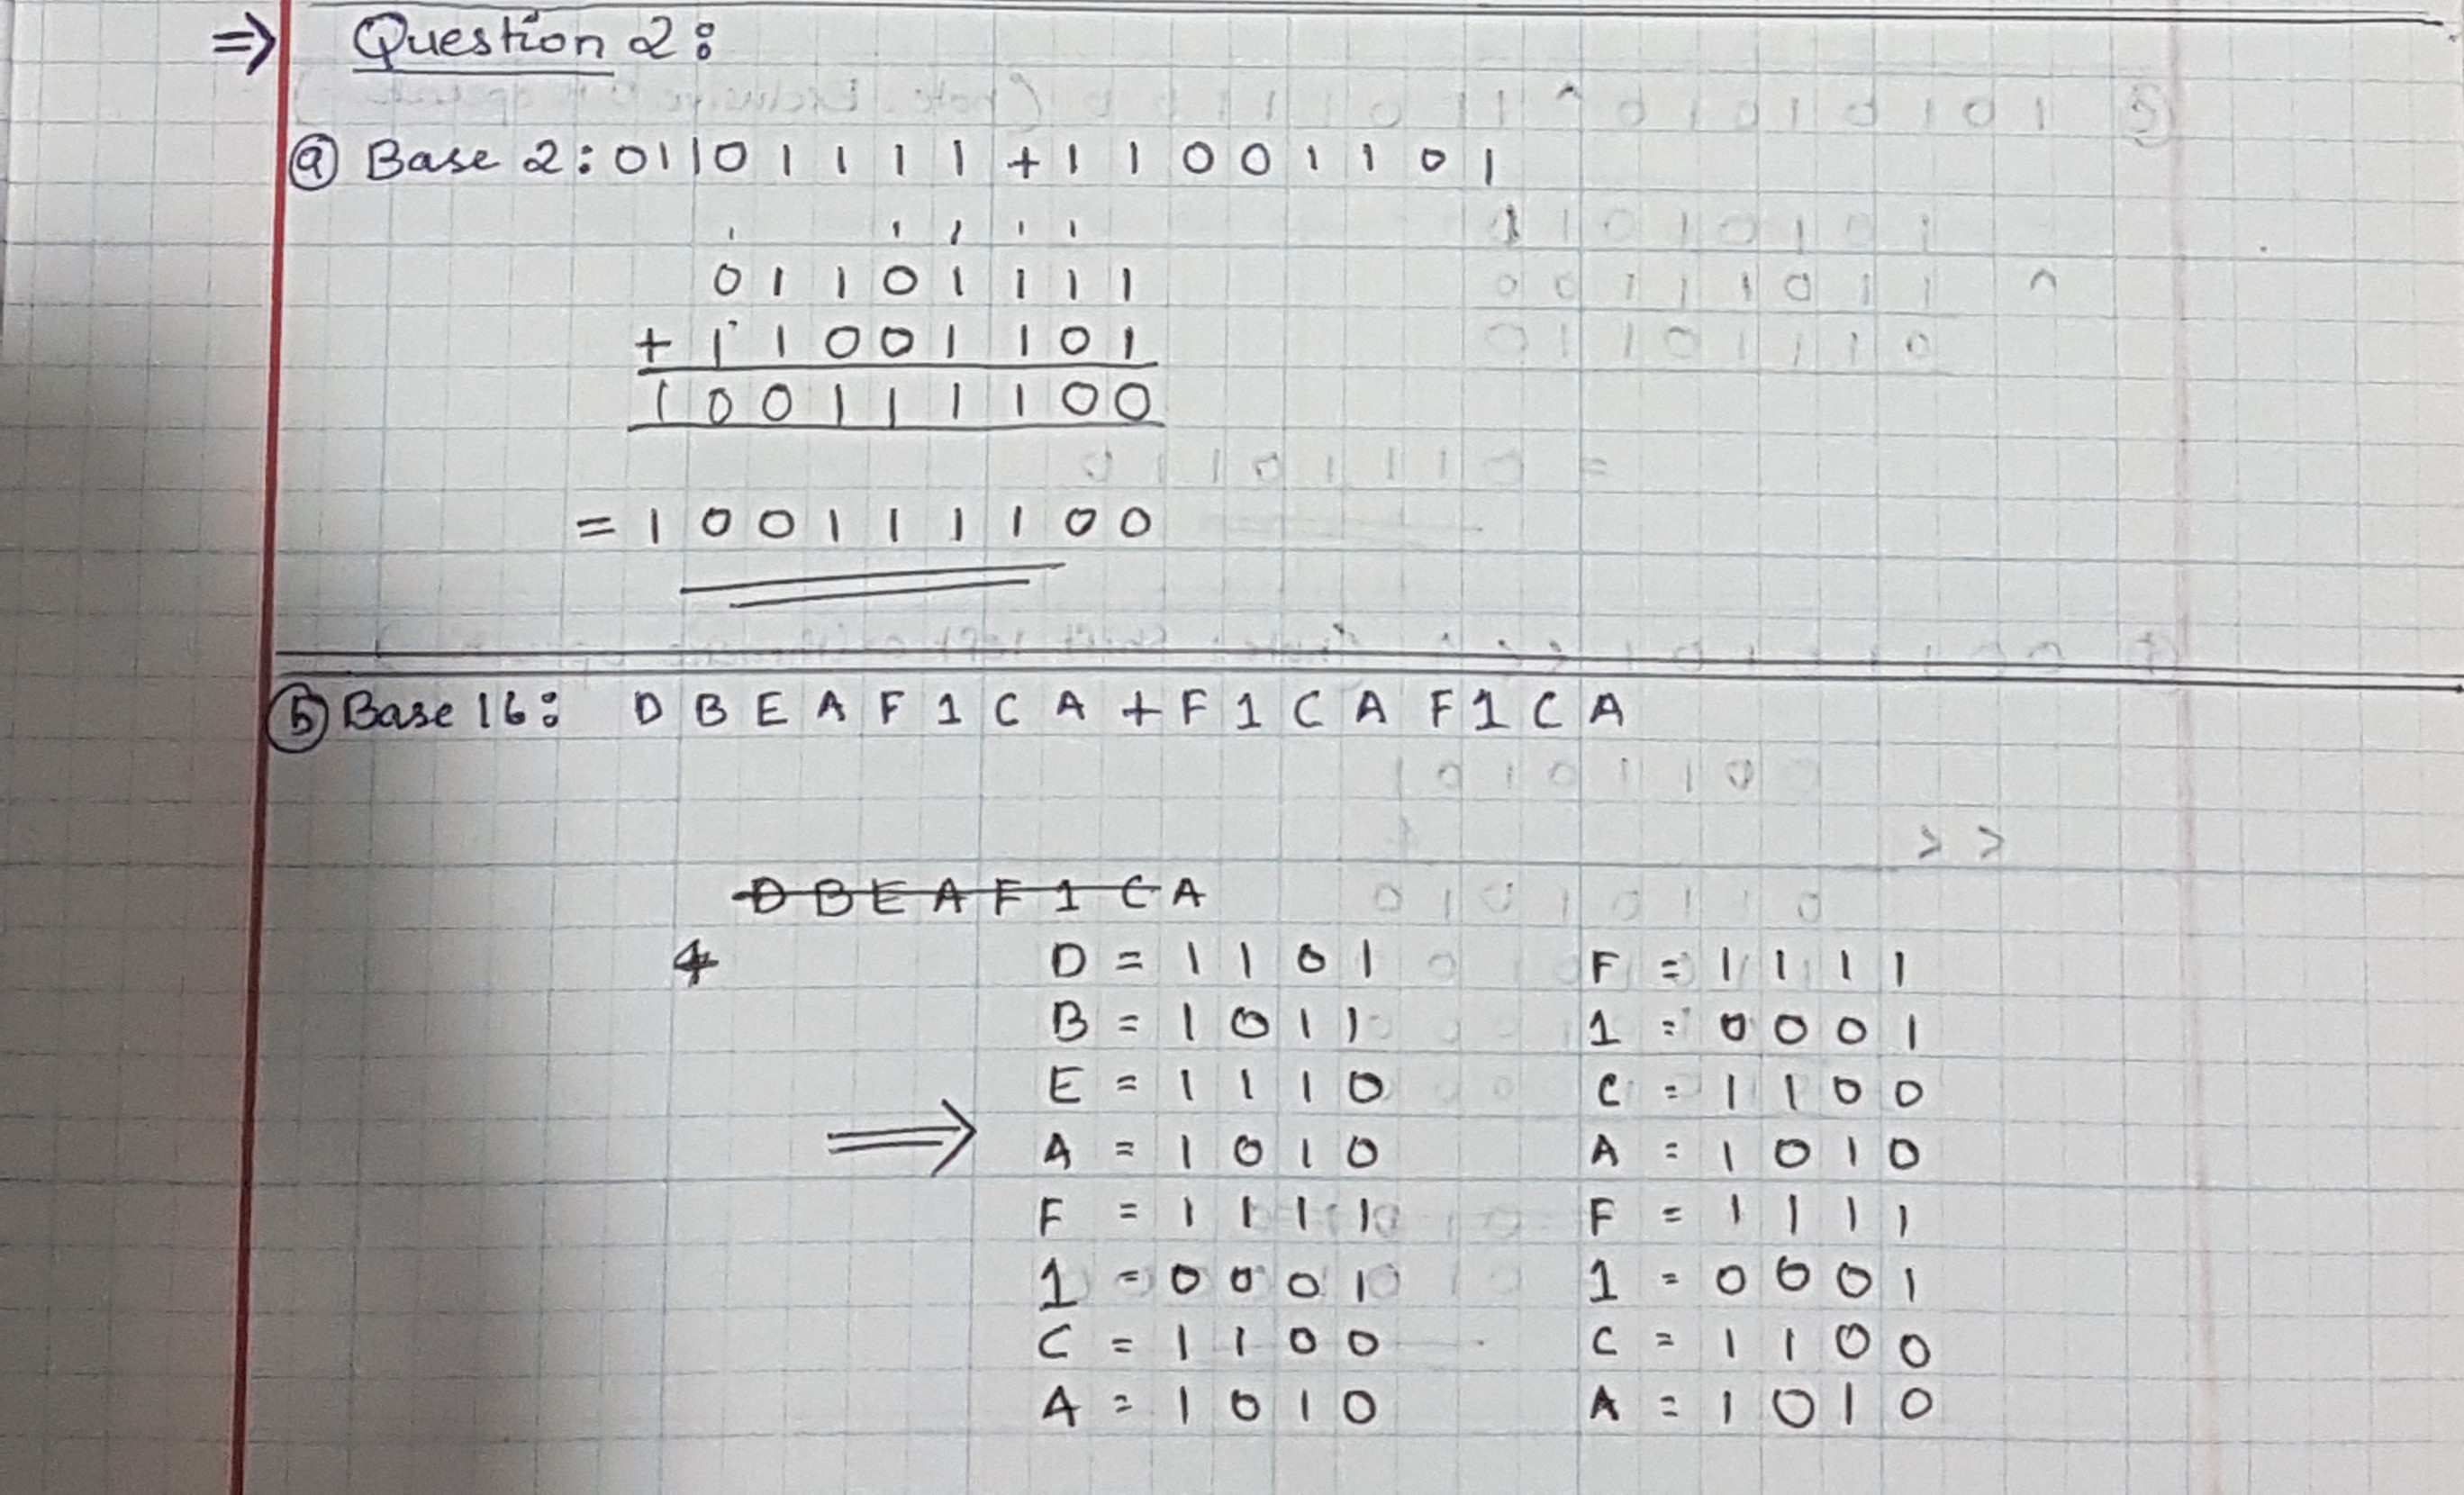 ⇒ Question 2:
ⓐ Base 2: 01101111 + 11001101
1 1 1 1 1
0 1 1 0 1 1 1 1
+ 1 1 0 0 1 1 0 1
1 0 0 1 1 1 1 0 0
= 1 0 0 1 1 1 1 0 0
ⓑ Base 16: D B E A F 1 C A + F 1 C A F 1 C A
D B E A F 1 C A
D = 1 1 0 1 F = 1 1 1 1
B = 1 0 1 1 1 = 0 0 0 1
E = 1 1 1 0 C = 1 1 0 0
⇒ A = 1 0 1 0 A = 1 0 1 0
F = 1 1 1 1 F = 1 1 1 1
1 = 0 0 0 1 1 = 0 0 0 1
C = 1 1 0 0 C = 1 1 0 0
A = 1 0 1 0 A = 1 0 1 0